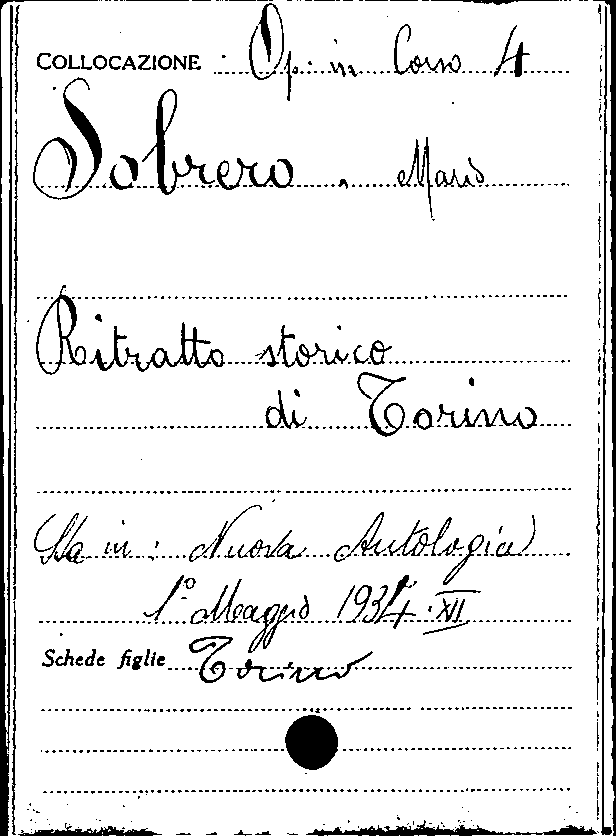 COLLOCAZIONE Op. in Corso 4
Sobrero. Mario
Ritratto storico
di Torino
Sta in: Nuova Antologia
1º Maggio 1934. XII
Schede figlie Torino